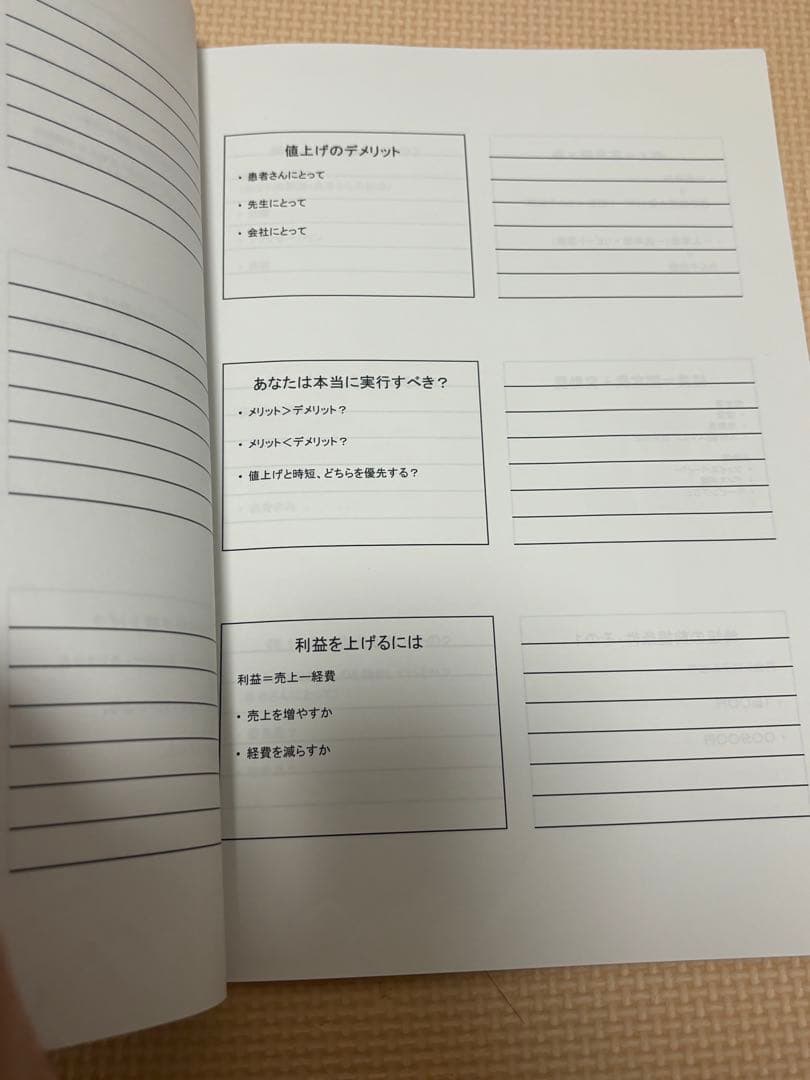 値上げのデメリット
・患者さんにとって
・先生にとって
・会社にとって
あなたは本当に実行すべき？
・メリット＞デメリット？
・メリット＜デメリット？
・値上げと時短、どちらを優先する？
利益を上げるには
利益＝売上ー経費
・売上を増やすか
・経費を減らすか